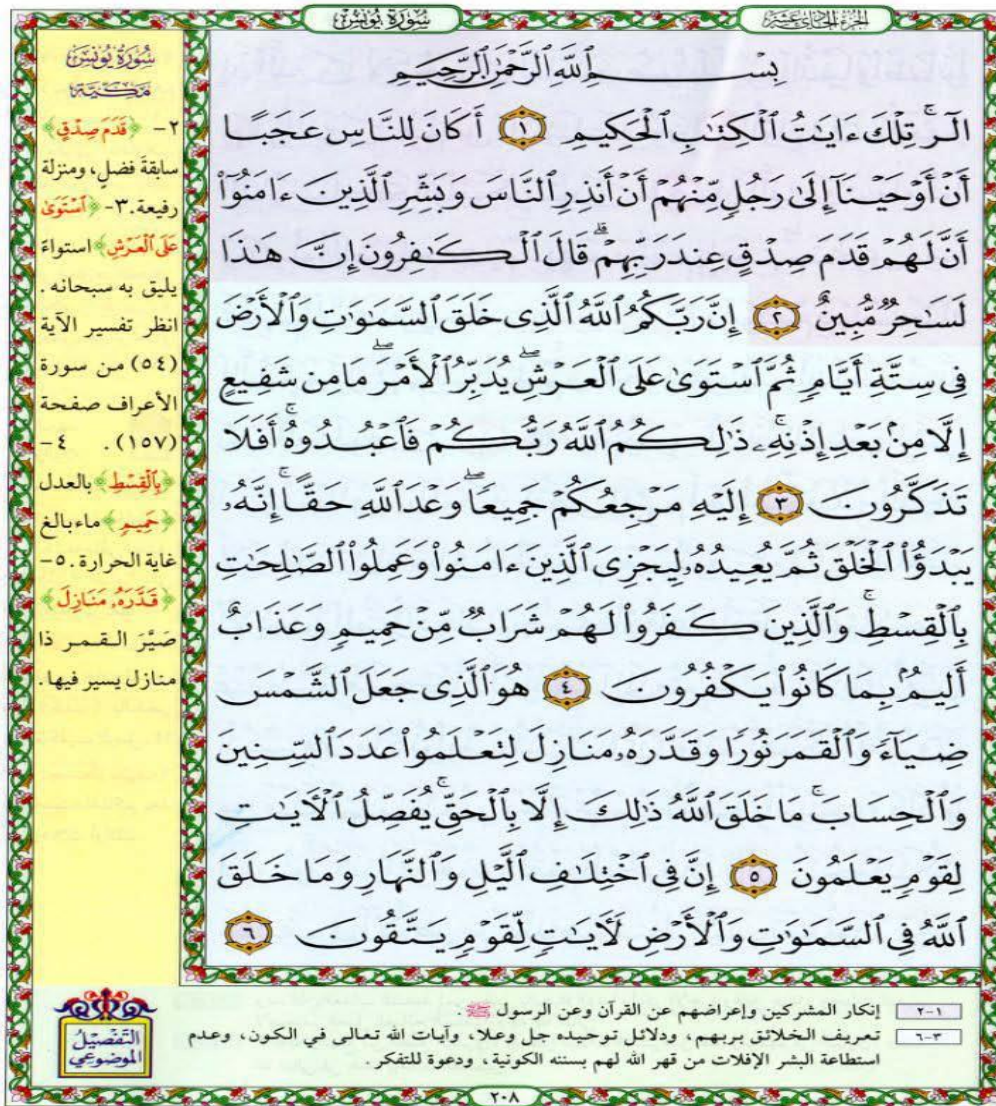 الجزء الحادي عشر
سُورَةُ يُونُسَ
بِسْمِ ٱللَّهِ ٱلرَّحْمَٰنِ ٱلرَّحِيمِ
الٓرۚ تِلْكَ ءَايَٰتُ ٱلْكِتَٰبِ ٱلْحَكِيمِ ١ أَكَانَ لِلنَّاسِ عَجَبًا
أَنْ أَوْحَيْنَآ إِلَىٰ رَجُلٍ مِّنْهُمْ أَنْ أَنذِرِ ٱلنَّاسَ وَبَشِّرِ ٱلَّذِينَ ءَامَنُوٓا۟
أَنَّ لَهُمْ قَدَمَ صِدْقٍ عِندَ رَبِّهِمْۗ قَالَ ٱلْكَٰفِرُونَ إِنَّ هَٰذَا
لَسَٰحِرٌ مُّبِينٌ ٢ إِنَّ رَبَّكُمُ ٱللَّهُ ٱلَّذِى خَلَقَ ٱلسَّمَٰوَٰتِ وَٱلْأَرْضَ
فِى سِتَّةِ أَيَّامٍ ثُمَّ ٱسْتَوَىٰ عَلَى ٱلْعَرْشِۖ يُدَبِّرُ ٱلْأَمْرَۖ مَا مِن شَفِيعٍ
إِلَّا مِنۢ بَعْدِ إِذْنِهِۦۚ ذَٰلِكُمُ ٱللَّهُ رَبُّكُمْ فَٱعْبُدُوهُۚ أَفَلَا
تَذَكَّرُونَ ٣ إِلَيْهِ مَرْجِعُكُمْ جَمِيعًاۖ وَعْدَ ٱللَّهِ حَقًّاۚ إِنَّهُۥ
يَبْدَؤُا۟ ٱلْخَلْقَ ثُمَّ يُعِيدُهُۥ لِيَجْزِىَ ٱلَّذِينَ ءَامَنُوا۟ وَعَمِلُوا۟ ٱلصَّٰلِحَٰتِ
بِٱلْقِسْطِۚ وَٱلَّذِينَ كَفَرُوا۟ لَهُمْ شَرَابٌ مِّنْ حَمِيمٍ وَعَذَابٌ
أَلِيمٌۢ بِمَا كَانُوا۟ يَكْفُرُونَ ٤ هُوَ ٱلَّذِى جَعَلَ ٱلشَّمْسَ
ضِيَآءً وَٱلْقَمَرَ نُورًا وَقَدَّرَهُۥ مَنَازِلَ لِتَعْلَمُوا۟ عَدَدَ ٱلسِّنِينَ
وَٱلْحِسَابَۚ مَا خَلَقَ ٱللَّهُ ذَٰلِكَ إِلَّا بِٱلْحَقِّۚ يُفَصِّلُ ٱلْءَايَٰتِ
لِقَوْمٍ يَعْلَمُونَ ٥ إِنَّ فِى ٱخْتِلَٰفِ ٱلَّيْلِ وَٱلنَّهَارِ وَمَا خَلَقَ
ٱللَّهُ فِى ٱلسَّمَٰوَٰتِ وَٱلْأَرْضِ لَءَايَٰتٍ لِّقَوْمٍ يَتَّقُونَ ٦
سُورَةُ يُونُسَ
مَكِّيَّة
٢- ﴿قَدَمَ صِدْقٍ﴾
سابقةَ فضلٍ، ومنزلة
رفيعة. ٣- ﴿ٱسْتَوَىٰ
عَلَى ٱلْعَرْشِ﴾ استواءً
يليق به سبحانه.
انظر تفسير الآية
(٥٤) من سورة
الأعراف صفحة
(١٥٧). ٤-
﴿بِٱلْقِسْطِ﴾ بالعدل
﴿حَمِيمٍ﴾ ماء بالغ
غاية الحرارة. ٥-
﴿قَدَّرَهُۥ مَنَازِلَ﴾
صَيَّرَ القمر ذا
منازل يسير فيها.
١-٢ إنكار المشركين وإعراضهم عن القرآن وعن الرسول ﷺ.
٣-٦ تعريف الخلائق بربهم، ودلائل توحيده جل وعلا، وآيات الله تعالى في الكون، وعدم
استطاعة البشر الإفلات من قهر الله لهم بسننه الكونية، ودعوة للتفكر.
التَّفْصِيْلُ
الموْضوعي
٢٠٨